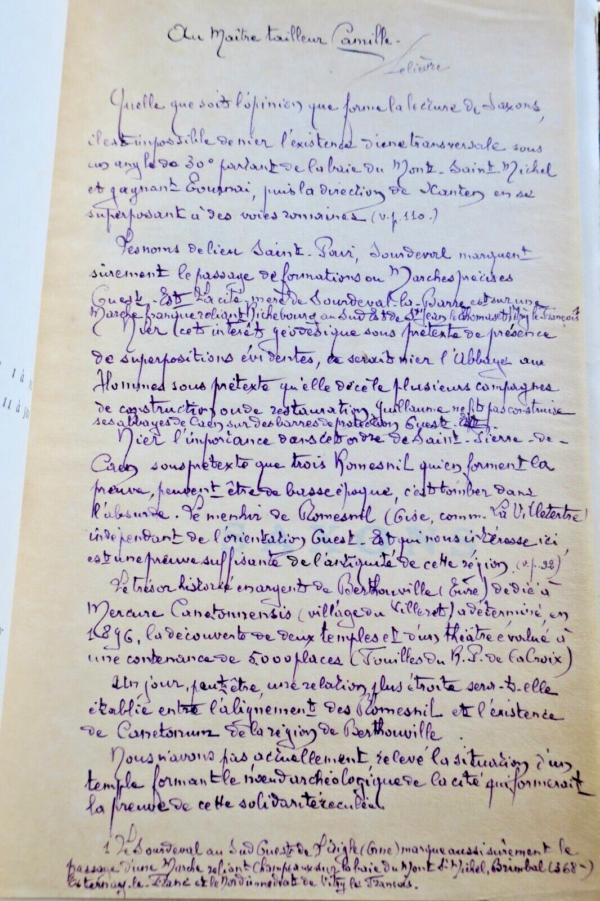 Au Maître tailleur Camille.
Lelièvre
Quelle que soit l'opinion que forme la lecture de Saxons,
il est impossible de nier l'existence d'une transversale sous
un angle de 30° partant de la baie du Mont-Saint-Michel
et gagnant Tournai, puis la direction de Xanten en se
superposant à des voies romaines (v. p. 110.)
Les noms de lieu Saint-Pair, Sourdeval marquent
sûrement le passage de formations ou Marches précises
Ouest-Est. La Cité mère de Sourdeval-la-Barre est sur une
Marche franque reliant Richebourg au Sud Est de St Jean le Thomas et Vitry le François
Nier cet intérêt géodésique sous prétexte de présence
de superpositions évidentes, ce serait nier l'Abbaye aux
Hommes sous prétexte qu'elle décèle plusieurs campagnes
de construction ou de restauration, Guillaume ne fit pas construire
ses abbayes de Caen sur des barres de protection Ouest-Est.
Nier l'importance dans cet ordre de Saint-Pierre-de-
Caen sous prétexte que trois Romesnil qui en forment la
preuve, peuvent être de basse époque, c'est tomber dans
l'absurde. Le menhir de Romesnil (Oise, comm. La Villetertre)
indépendant de l'orientation Ouest-Est qui nous intéresse ici,
est une preuve suffisante de l'antiquité de cette région (v. p. 98)
Le trésor historié en argent de Berthouville (Eure) dédié à
Mercure Canetonnensis (village du Villeret) a déterminé en
1896, la découverte de deux temples et d'un théâtre évalué à
une contenance de 5000 places (Fouilles du R. P. de la Croix)
Un jour, peut-être, une relation plus étroite sera-t-elle
établie entre l'alignement des Romesnil et l'existence
de Canetonum de la région de Berthouville
Nous n'avons pas actuellement relevé la situation d'un
temple formant le noeud archéologique de la cité qui formerait
la preuve de cette solidarité reculée.
1 Le Sourdeval au Sud Ouest de l'Aigle (Orne) marque aussi sûrement le
passage d'une Marche reliant Champeaux sur la baie du Mont St Michel, Brimbal (368-)
Esternay-le-Franc et le Nord immédiat de Vitry le François.